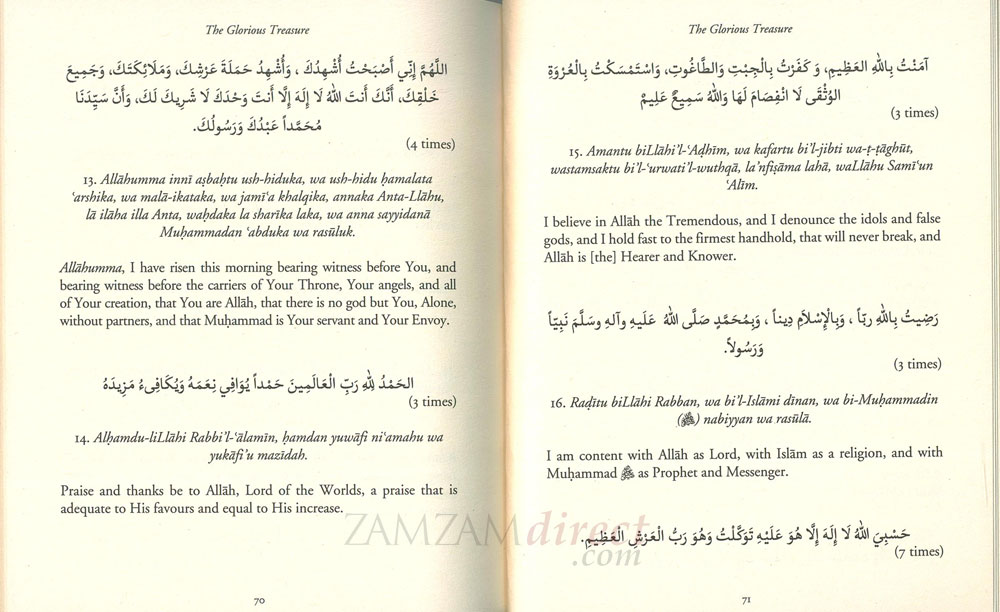 The Glorious Treasure
اللَّهُمَّ إِنِّي أَصْبَحْتُ أُشْهِدُكَ ، وَأُشْهِدُ حَمَلَةَ عَرْشِكَ، وَمَلَائِكَتَكَ، وَجَمِيعَ
خَلْقِكَ، أَنَّكَ أَنتَ اللهُ لَا إِلَهَ إِلَّا أَنتَ وَحْدَكَ لَا شَرِيكَ لَكَ، وَأَنَّ سَيِّدَنَا
مُحَمَّداً عَبْدُكَ وَرَسُولُكَ.
(4 times)
13. Allāhumma innī aṣbaḥtu ush-hiduka, wa ush-hidu ḥamalata
ʿarshika, wa malā-ikataka, wa jamīʿa khalqika, annaka Anta-Llāhu,
lā ilāha illa Anta, waḥdaka la sharīka laka, wa anna sayyidanā
Muḥammadan ʿabduka wa rasūluk.
Allāhumma, I have risen this morning bearing witness before You, and
bearing witness before the carriers of Your Throne, Your angels, and all
of Your creation, that You are Allāh, that there is no god but You, Alone,
without partners, and that Muḥammad is Your servant and Your Envoy.
الحَمْدُ لِلَّهِ رَبِّ الْعَالَمِينَ حَمْداً يُوَافِي نِعَمَهُ وَيُكَافِىءُ مَزِيدَهُ
(3 times)
14. Alḥamdu-liLlāhi Rabbi’l-ʿālamīn, ḥamdan yuwāfi niʿamahu wa
yukāfi’u mazīdah.
Praise and thanks be to Allāh, Lord of the Worlds, a praise that is
adequate to His favours and equal to His increase.
70
The Glorious Treasure
آمَنْتُ بِاللهِ العَظِيمِ، وَ كَفَرْتُ بِالْجِبْتِ وَالطَّاغُوتِ، وَاسْتَمْسَكْتُ بِالْعُرْوَةِ
الوُثْقَى لَا انْفِصَامَ لَهَا وَاللهُ سَمِيعٌ عَلِيمٌ
(3 times)
15. Amantu biLlāhi’l-ʿAḍhīm, wa kafartu bi’l-jibti wa-ṭ-ṭāghūt,
wastamsaktu bi’l-ʿurwati’l-wuthqā, la’nfiṣāma lahā, waLlāhu Samīʿun
ʿAlīm.
I believe in Allāh the Tremendous, and I denounce the idols and false
gods, and I hold fast to the firmest handhold, that will never break, and
Allāh is [the] Hearer and Knower.
رَضِيتُ بِاللهِ ربّاً ، وَبِالْإِسْلَامِ دِيناً ، وَبِمُحَمَّدٍ صَلَّى اللهُ عَلَيهِ وآلهِ وسَلَّمَ نَبِيّاً
وَرَسُولاً.
(3 times)
16. Raḍītu biLlāhi Rabban, wa bi’l-Islāmi dīnan, wa bi-Muḥammadin
(ﷺ) nabiyyan wa rasūlā.
I am content with Allāh as Lord, with Islām as a religion, and with
Muḥammad ﷺ as Prophet and Messenger.
حَسْبِيَ اللهُ لَا إِلَهَ إِلَّا هُوَ عَلَيْهِ تَوَكَّلْتُ وَهُوَ رَبُّ الْعَرْشِ الْعَظِيمِ.
(7 times)
71
ZAMZAMdirect
.com